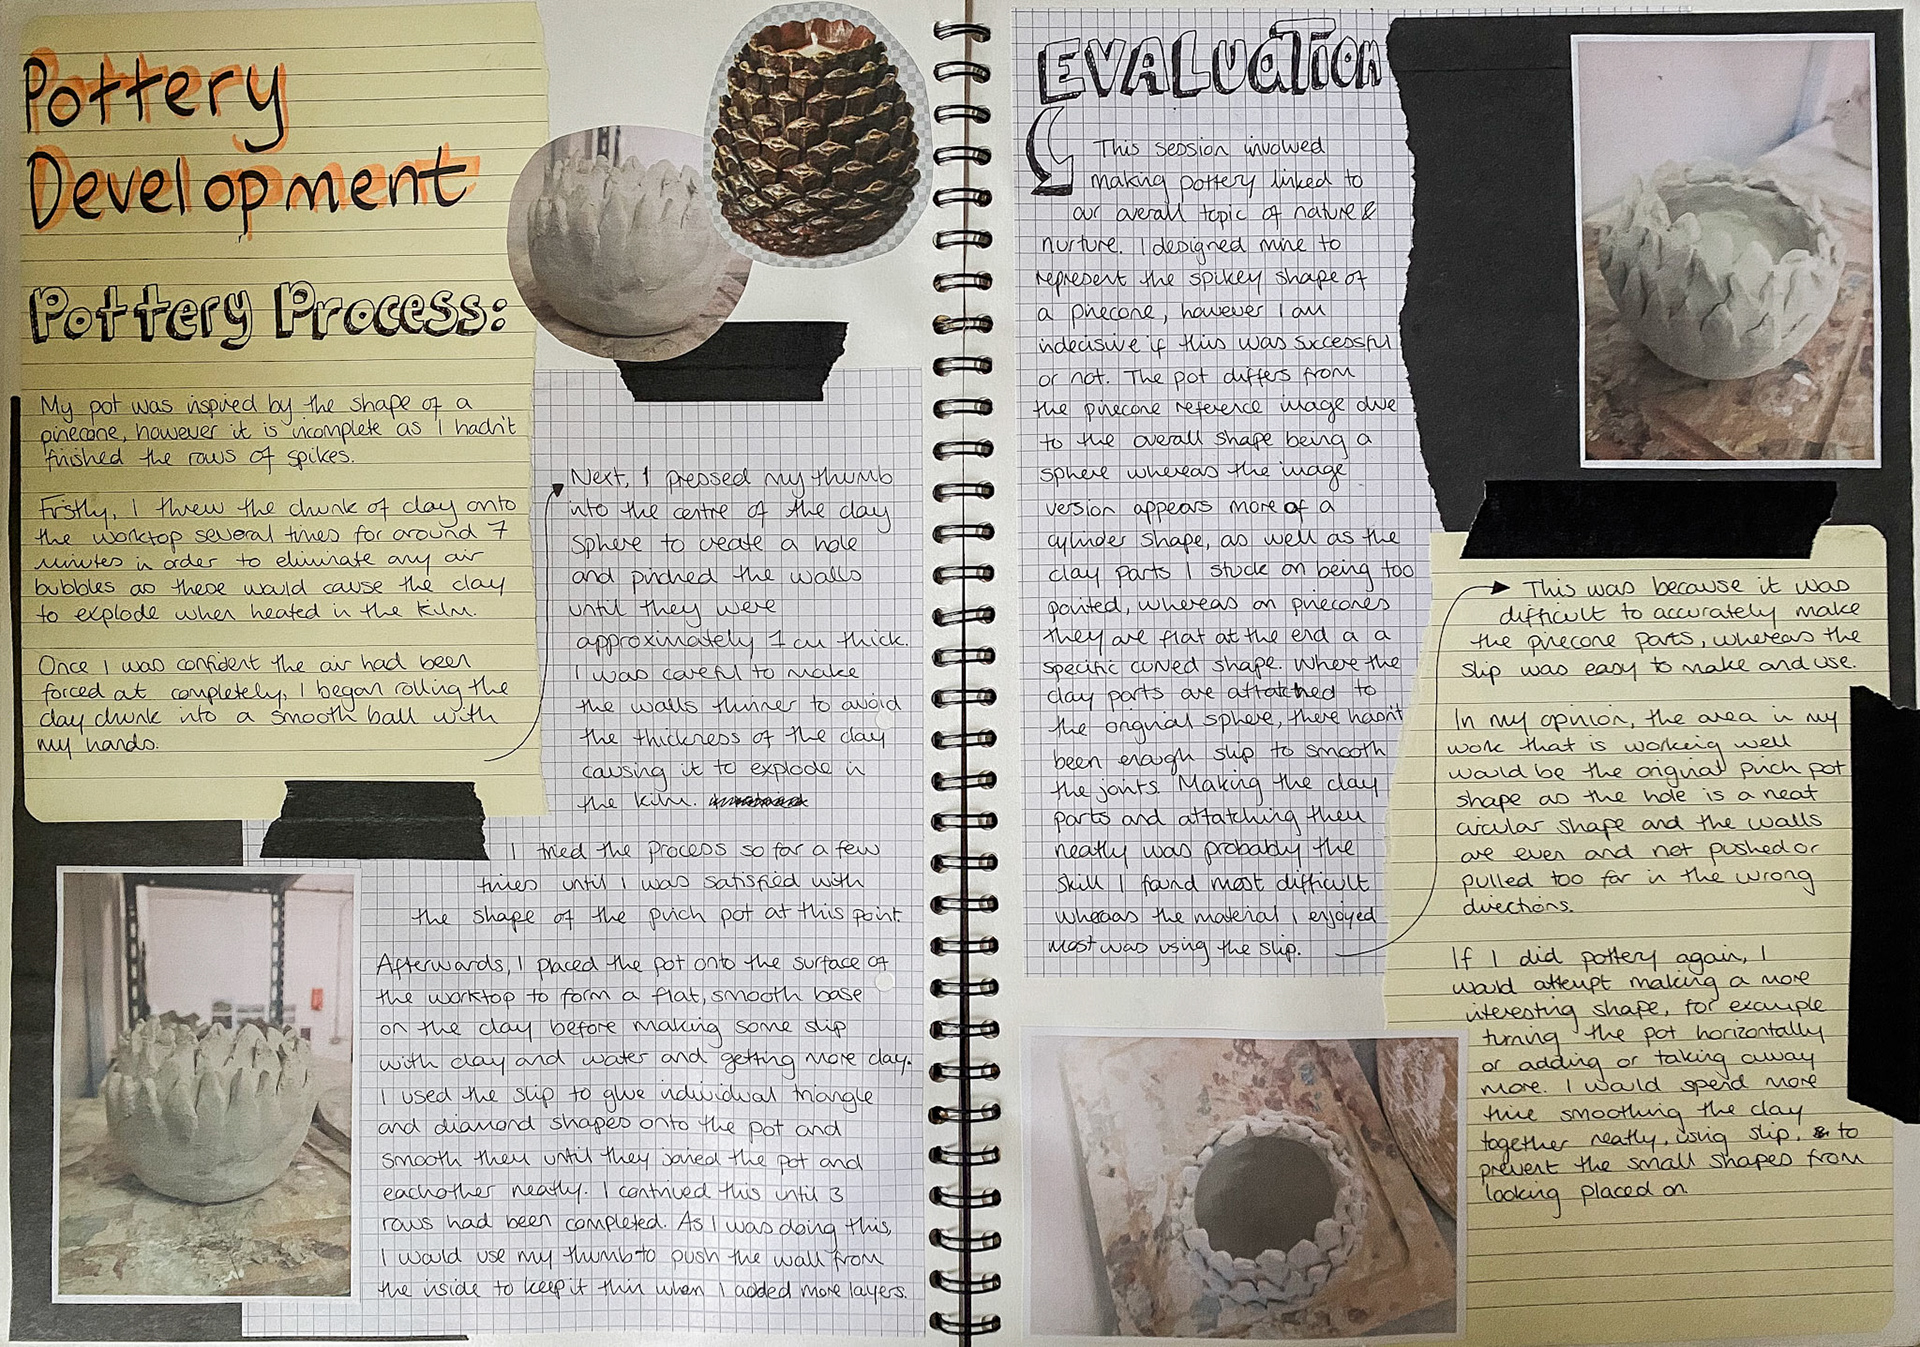 Pottery
Development
Pottery Process:
My pot was inspired by the shape of a
pinecone, however it is incomplete as I hadn't
finished the rows of spikes.
Firstly, I threw the chunk of clay onto
the worktop several times for around 7
minutes in order to eliminate any air
bubbles as these would cause the clay
to explode when heated in the kiln.
Once I was confident the air had been
forced out completely, I began rolling the
clay chunk into a smooth ball with
my hands.
Next, I pressed my thumb
into the centre of the clay
sphere to create a hole
and pinched the walls
until they were
approximately 1 cm thick.
I was careful to make
the walls thinner to avoid
the thickness of the clay
causing it to explode in
the kiln.
I tried the process so far a few
times until I was satisfied with
the shape of the pinch pot at this point.
Afterwards, I placed the pot onto the surface of
the worktop to form a flat, smooth base
on the clay before making some slip
with clay and water and getting more clay.
I used the slip to glue individual triangle
and diamond shapes onto the pot and
smooth them until they joined the pot and
eachother neatly. I continued this until 3
rows had been completed. As I was doing this,
I would use my thumb to push the wall from
the inside to keep it thin when I added more layers.
EVALUATION
This session involved
making pottery linked to
our overall topic of nature &
nurture. I designed mine to
represent the spikey shape of
a pinecone, however I am
indecisive if this was successful
or not. The pot differs from
the pinecone reference image due
to the overall shape being a
sphere whereas the image
version appears more of a
cylinder shape, as well as the
clay parts I stuck on being too
pointed, whereas on pinecones
they are flat at the end a a
specific curved shape. Where the
clay parts are attatched to
the original sphere, there hasn't
been enough slip to smooth
the joints. Making the clay
parts and attatching them
neatly was probably the
skill I found most difficult
whereas the material I enjoyed
most was using the slip.
This was because it was
difficult to accurately make
the pinecone parts, whereas the
slip was easy to make and use.
In my opinion, the area in my
work that is working well
would be the original pinch pot
shape as the hole is a neat
circular shape and the walls
are even and not pushed or
pulled too far in the wrong
directions.
If I did pottery again, I
would attempt making a more
interesting shape, for example
turning the pot horizontally
or adding or taking away
more. I would spend more
time smoothing the clay
together neatly, using slip, to
prevent the small shapes from
looking placed on.